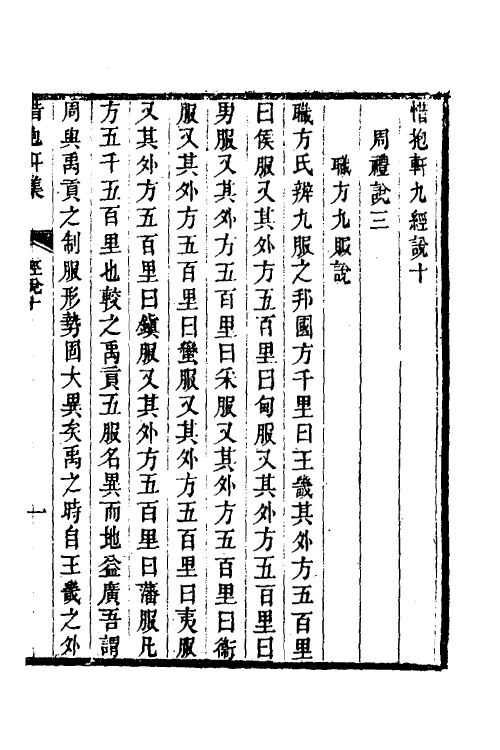 惜抱軒九經說十
周禮說三
職方九服說
職方氏辨九服之邦國方千里曰王畿其外方五百里
曰侯服又其外方五百里曰甸服又其外方五百里曰
男服又其外方五百里曰采服又其外方五百里曰衞
服又其外方五百里曰蠻服又其外方五百里曰夷服
又其外方五百里曰鎭服又其外方五百里曰藩服凡
方五千五百里也較之禹貢五服名異而地益廣吾謂
周與禹貢之制服形勢固大異矣禹之時自王畿之外
惜抱軒集 經說十 一